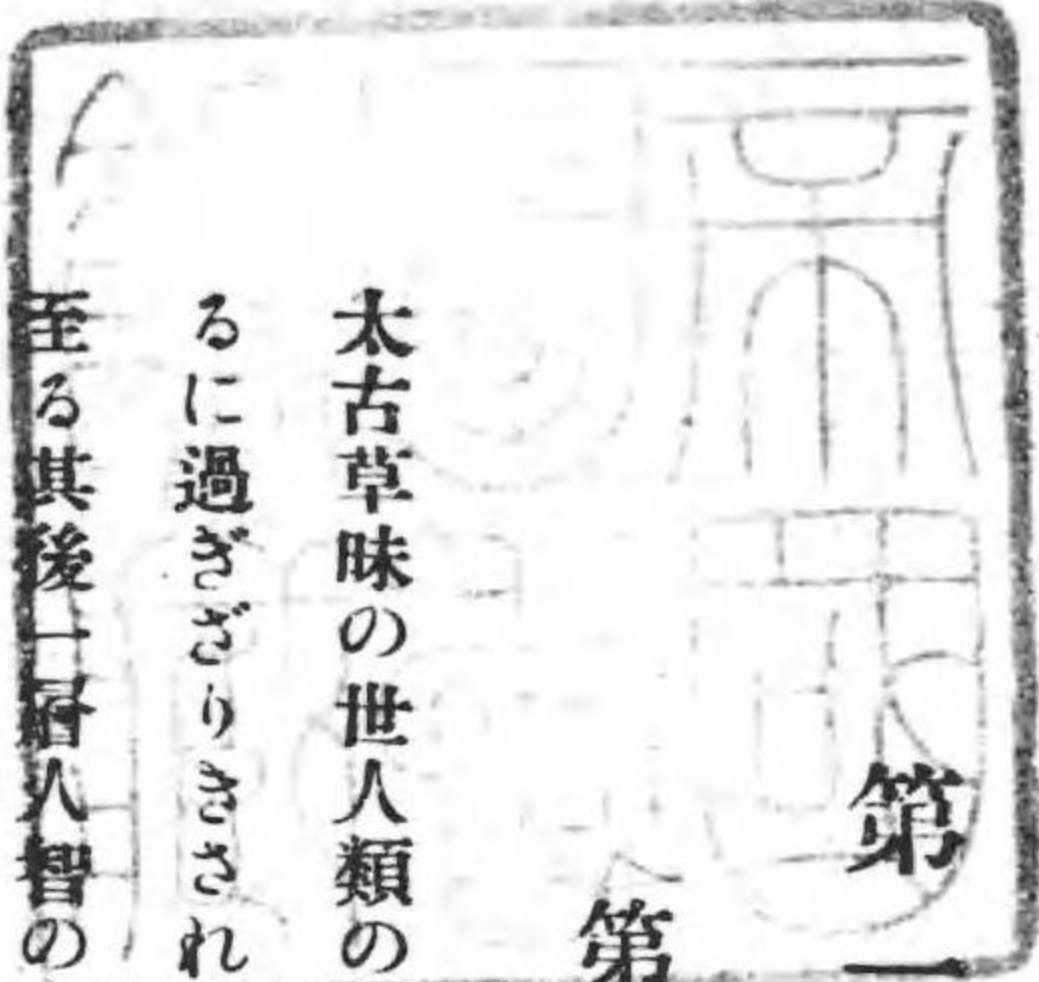 第一
第
太古草昧の世人類の
るに過ぎざりきされ
至る其後一層人智の